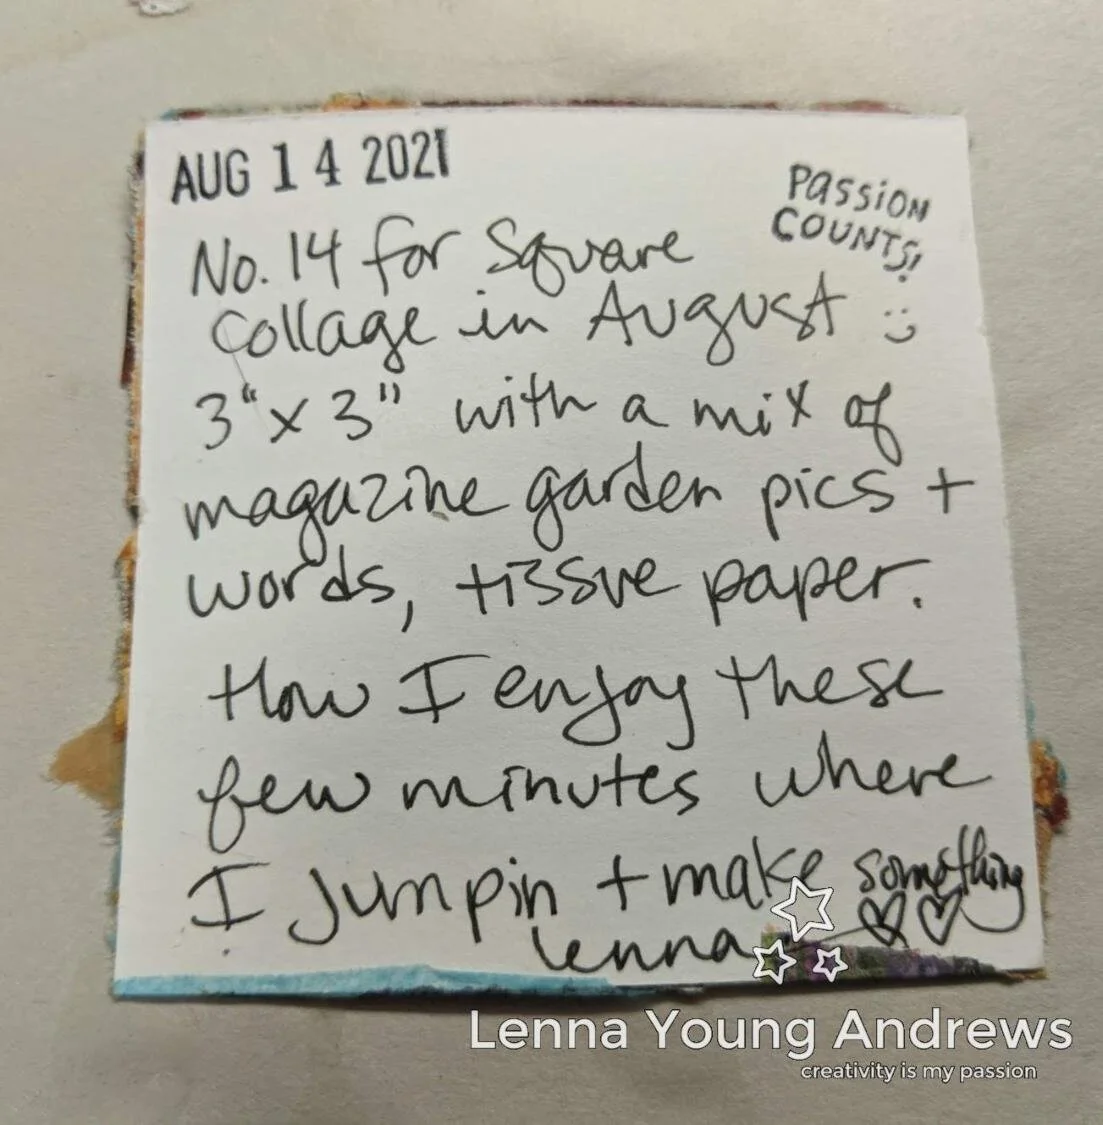 AUG 14 2021
PASSION
COUNTS!
No. 14 for Square
Collage in August :)
3" x 3" with a mix of
magazine garden pics +
words, tissue paper.
How I enjoy these
few minutes where
I jump in + make something
lenna
Lenna Young Andrews
creativity is my passion